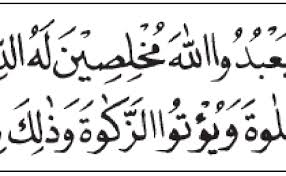 يَعْبُدُوا اللّٰهَ مُخْلِصِيْنَ لَهُ
وَيُؤْتُوا الزَّكٰوةَ وَذٰلِكَ